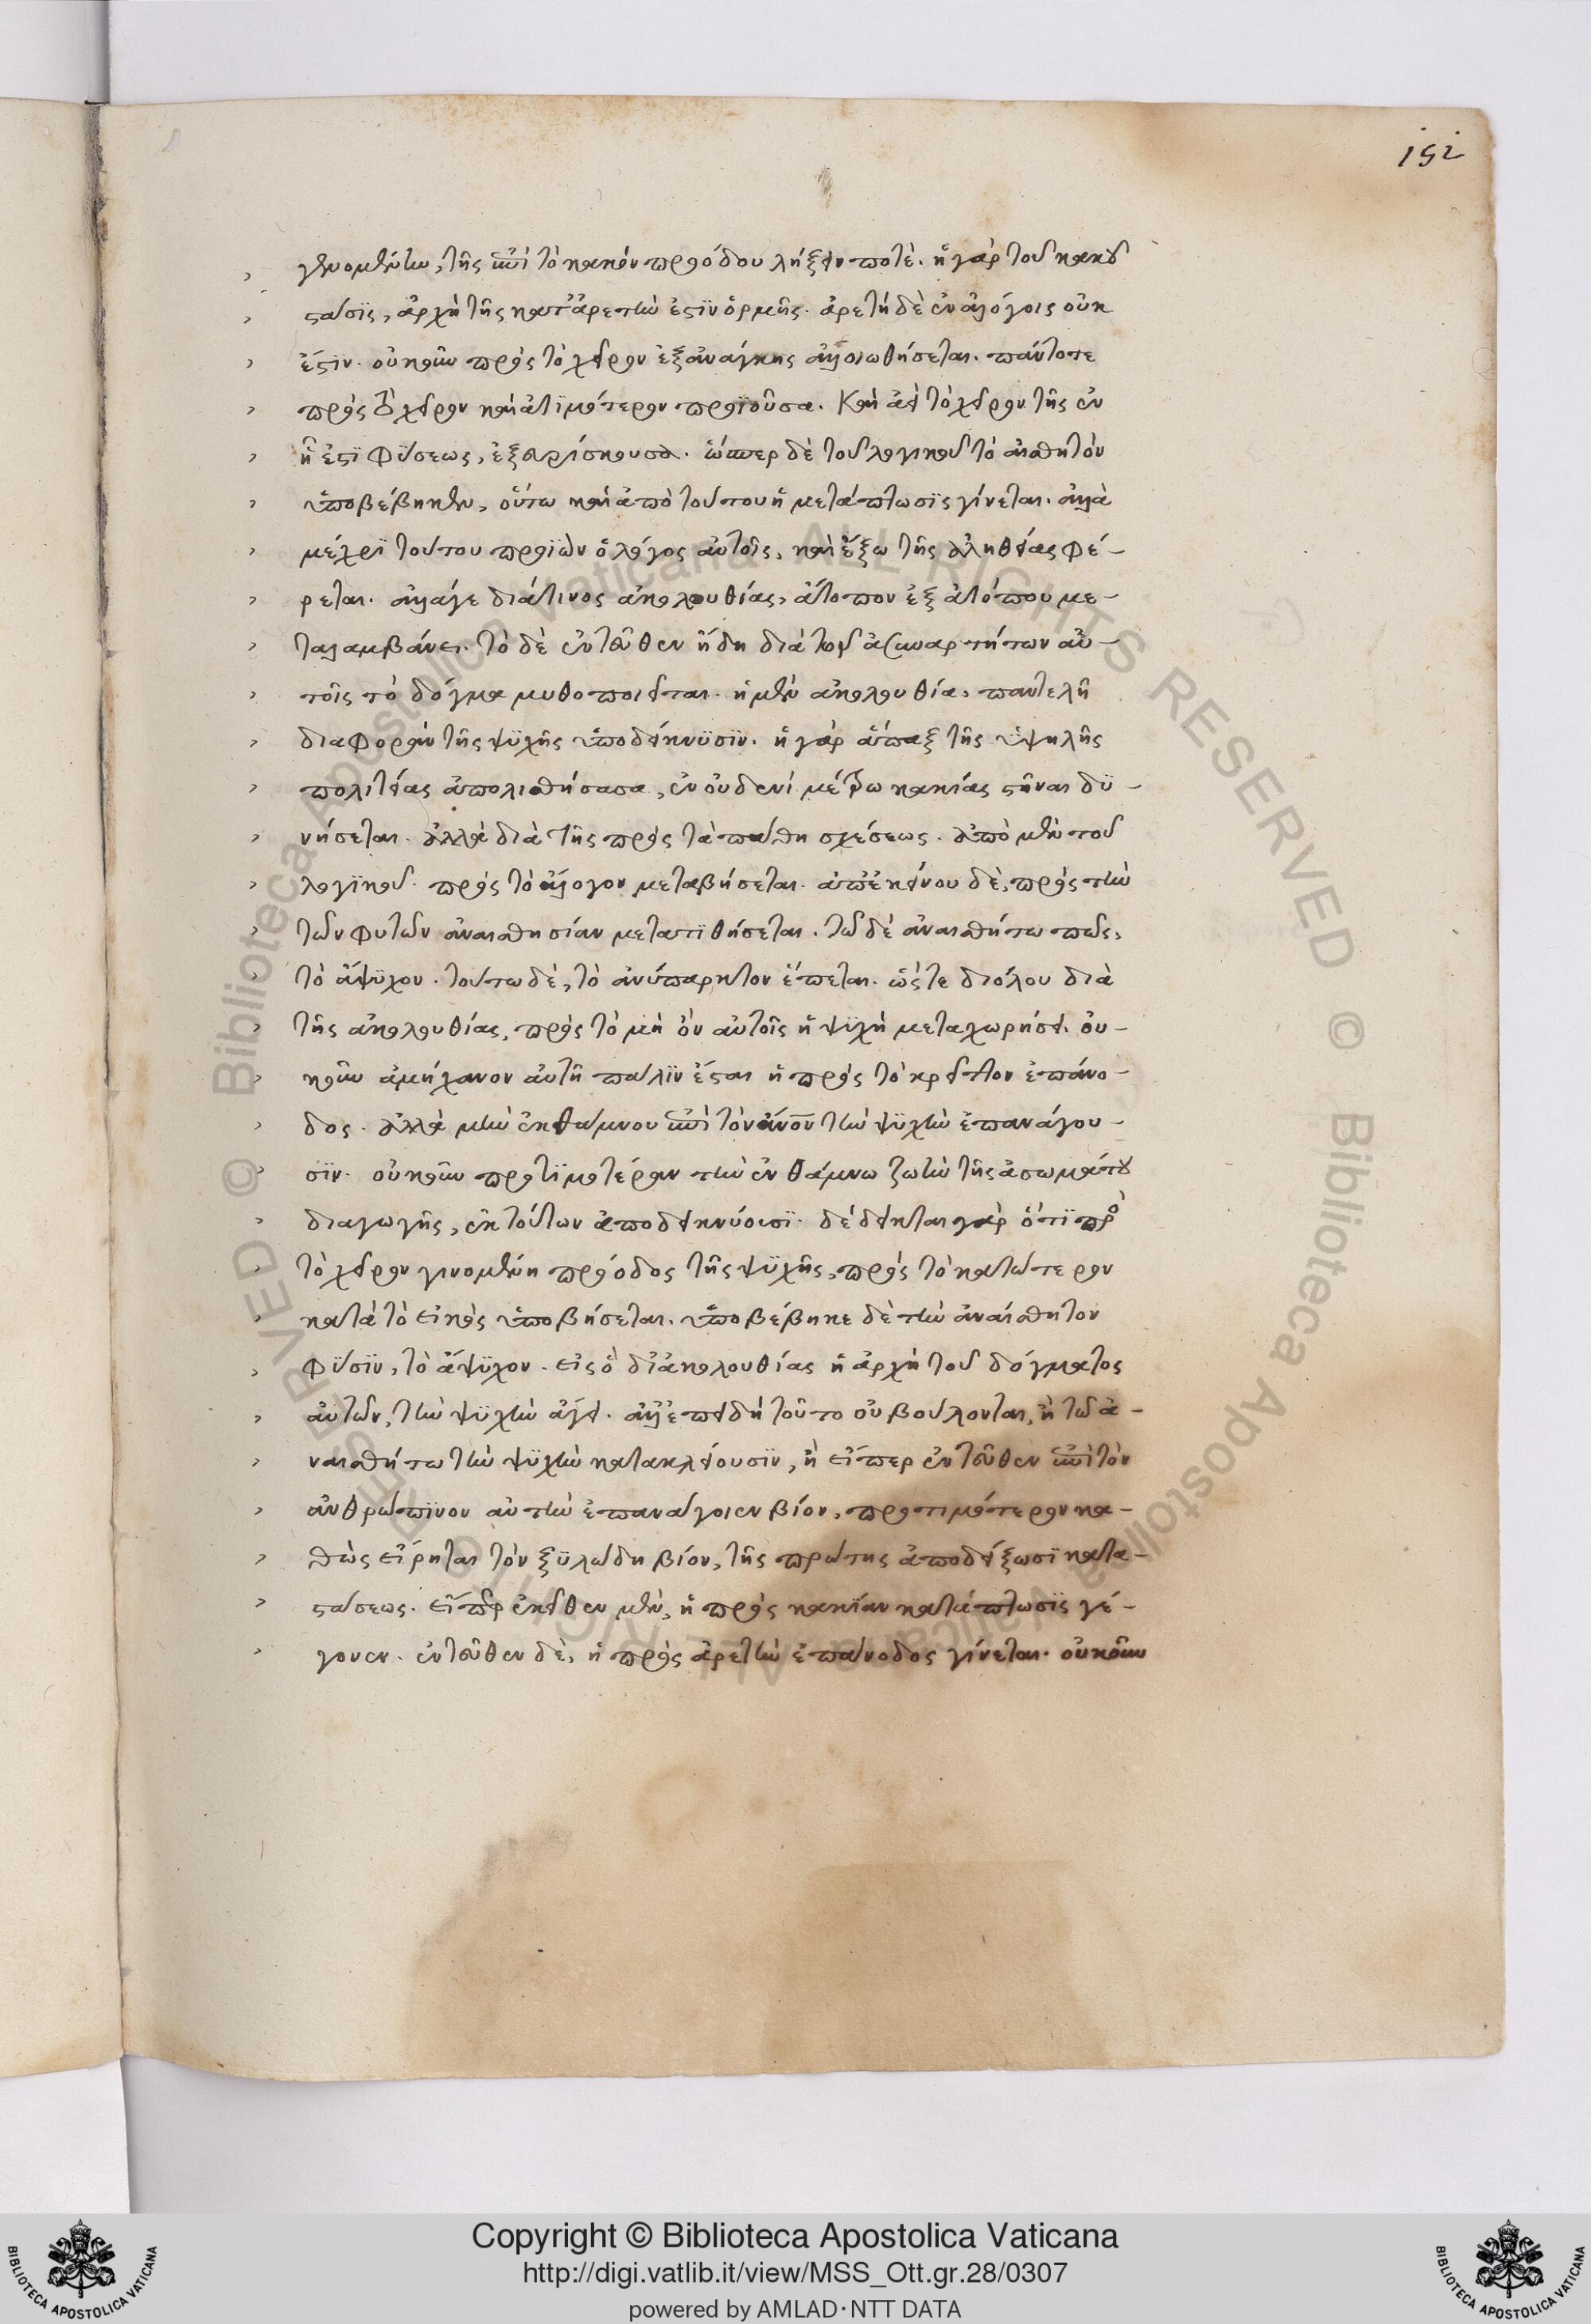 152
γενομένην, τῆς ἐπὶ τὸ κακὸν προόδου λήξειν ποτέ. ἡ γὰρ τοῦ κακοῦ
στάσϊς, ἀρχὴ τῆς κατ' ἀρετὴν ἐστὶν ὁρμῆς. ἀρετὴ δὲ ἐν ἀλόγοις οὐκ
ἔστιν. οὐκοῦν πρὸς τὸ χεῖρον ἐξανάγκης ἀλλοιωθήσεται. πάντοτε
πρὸς τὸ χεῖρον καὶ ἀτϊμότερον προϊοῦσα. Καὶ ἀεὶ τὸ χεῖρον τῆς ἐν
ᾗ ἐστὶ φύσεως, ἐξευρίσκουσα. ὥσπερ δὲ τοῦ λογικοῦ τὸ αἰσθητὸν
ὑποβέβηκεν, οὕτω καὶ ἀπὸ τούτου ἡ μετάπτωσϊς γίνεται. ἀλλὰ
μέχρϊ τούτου προϊὼν ὁ λόγος αὐτοῖς, κἂν ἔξω τῆς ἀληθείας φέ-
ρεται. ἀλλάγε διά τινος ἀκολουθίας, ἄτοπον ἐξ ἀτόπου με-
ταλαμβάνει. τὸ δὲ ἐντεῦθεν ἤδη διὰ τῶν ἀσυναρτήτων αὐ-
τοῖς τὸ δόγμα μυθοποιεῖται. ἡ μὲν ἀκολουθία, παντελῆ
διαφορὰν τῆς ψϋχῆς ὑποδείκνϋσϊν. ἡ γὰρ ἅπαξ τῆς ὑψηλῆς
πολιτείας ἀπολισθήσασα, ἐν οὐδενὶ μέτρω κακίας στῆναι δϋ-
νήσεται. ἀλλὰ διὰ τῆς πρὸς τὰ πάθη σχέσεως. ἀπὸ μὲν τοῦ
λογϊκοῦ. πρὸς τὸ ἄλογον μεταβήσεται. ἀπ' ἐκείνου δὲ, πρὸς τὴν
τῶν φυτῶν ἀναισθησίαν μετατϊθήσεται. τῶ δὲ ἀναισθήτω πως,
τὸ ἄψϋχον. τούτω δὲ, τὸ ἀνύπαρκτον ἕπεται. ὥστε διόλου διὰ
τῆς ἀκολουθίας, πρὸς τὸ μὴ ὂν αὐτοῖς ἡ ψϋχὴ μεταχωρήσει. οὐ-
κοῦν ἀμήχανον αὐτῆ πάλϊν ἔσται ἡ πρὸς τὸ κρεῖττον ἐπάνο-
δος. ἀλλὰ μὴν ἐκ θάμνου ἐπὶ τὸν ἄνον τὴν ψϋχὴν ἐπανάγου-
σϊν. οὐκοῦν προτϊμοτέραν τὴν ἐν θάμνω ζωὴν τῆς ἀσωμάτου
διαγωγῆς, ἐκ τούτων ἀποδεικνύουσϊ. δέδεικται γὰρ ὅτϊ πρὸς
τὸ χεῖρον γινομένη πρόοδος τῆς ψϋχῆς, πρὸς τὸ κατώτερον
κατὰ τὸ εἰκὸς ὑποβήσεται. ὑποβέβηκε δὲ τὴν ἀναίσθητον
φύσϊν, τὸ ἄψϋχον. εἰς ὃ δι' ἀκολουθίας ἡ ἀρχὴ τοῦ δόγματος
αὐτῶν, τὴν ψϋχὴν ἄγει. ἀλλ' ἐπειδὴ τοῦτο οὐ βούλονται, ἢ τῶ ἀ-
ναισθήτω τὴν ψϋχὴν κατακλείουσϊν, ἢ εἴπερ ἐντεῦθεν ἐπὶ τὸν
ἀνθρώπϊνον αὐτὴν ἐπανάγοιεν βίον, προτιμότερον κα-
θὼς εἴρηται τὸν ξϋλώδη βίον, τῆς πρώτης ἀποδείξωσϊ κατα-
στάσεως. εἴπερ ἐκεῖθεν μὲν, ἡ πρὸς κακίαν κατάπτωσϊς γέ-
γονεν. ἐντεῦθεν δὲ, ἡ πρὸς ἀρετὴν ἐπάνοδος γίνεται. οὐκοῦν
© Biblioteca Apostolica Vaticana ALL RIGHTS RESERVED © Biblioteca Apostolica Vaticana ALL RIGHTS RESERVED
Copyright © Biblioteca Apostolica Vaticana
http://digi.vatlib.it/view/MSS_Ott.gr.28/0307
powered by AMLAD·NTT DATA
BIBLIOTECA APOSTOLICA VATICANA
BIBLIOTECA APOSTOLICA VATICANA